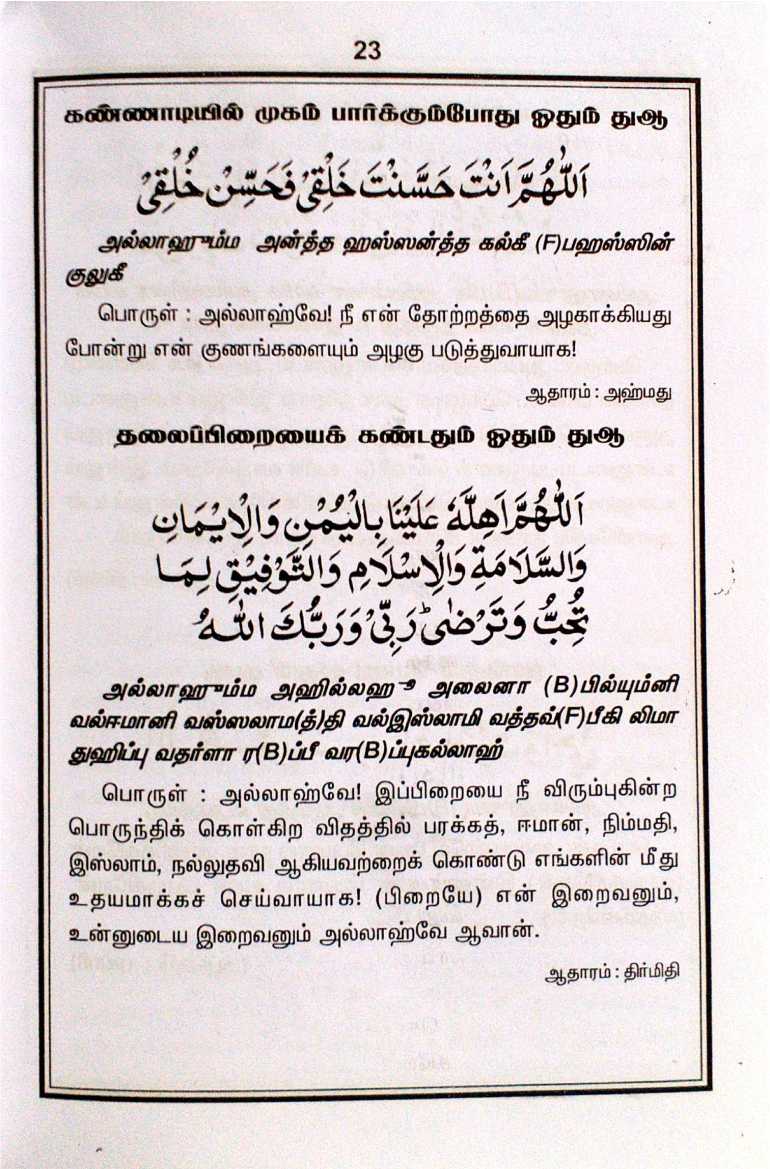 23
கண்ணாடியில் முகம் பார்க்கும்போது ஓதும் துஆ
اَللّٰهُمَّ اَنْتَ حَسَّنْتَ خَلْقِيْ فَحَسِّنْ خُلُقِيْ
அல்லாஹும்ம அன்த்த ஹஸ்ஸன்த்த கல்கீ (F)பஹஸ்ஸின்
குலுகீ
பொருள் : அல்லாஹ்வே! நீ என் தோற்றத்தை அழகாக்கியது
போன்று என் குணங்களையும் அழகு படுத்துவாயாக!
ஆதாரம் : அஹ்மது
தலைப்பிறையைக் கண்டதும் ஓதும் துஆ
اَللّٰهُمَّ اَهِلَّهٗ عَلَيْنَا بِالْيُمْنِ وَالْاِيْمَانِ
وَالسَّلَامَةِ وَالْاِسْلَامِ وَالتَّوْفِيْقِ لِمَا
تُحِبُّ وَتَرْضٰىؕ رَبِّيْ وَرَبُّكَ اللّٰهُ
அல்லாஹும்ம அஹில்லஹூ அலைனா (B)பில்யும்னி
வல்ஈமானி வஸ்ஸலாம(த்)தி வல்இஸ்லாமி வத்தவ்(F)பீகி லிமா
துஹிப்பு வதர்ளா ர(B)ப்பீ வர(B)ப்புகல்லாஹ்
பொருள் : அல்லாஹ்வே! இப்பிறையை நீ விரும்புகின்ற
பொருந்திக் கொள்கிற விதத்தில் பரக்கத், ஈமான், நிம்மதி,
இஸ்லாம், நல்லுதவி ஆகியவற்றைக் கொண்டு எங்களின் மீது
உதயமாக்கச் செய்வாயாக! (பிறையே) என் இறைவனும்,
உன்னுடைய இறைவனும் அல்லாஹ்வே ஆவான்.
ஆதாரம் : திர்மிதி